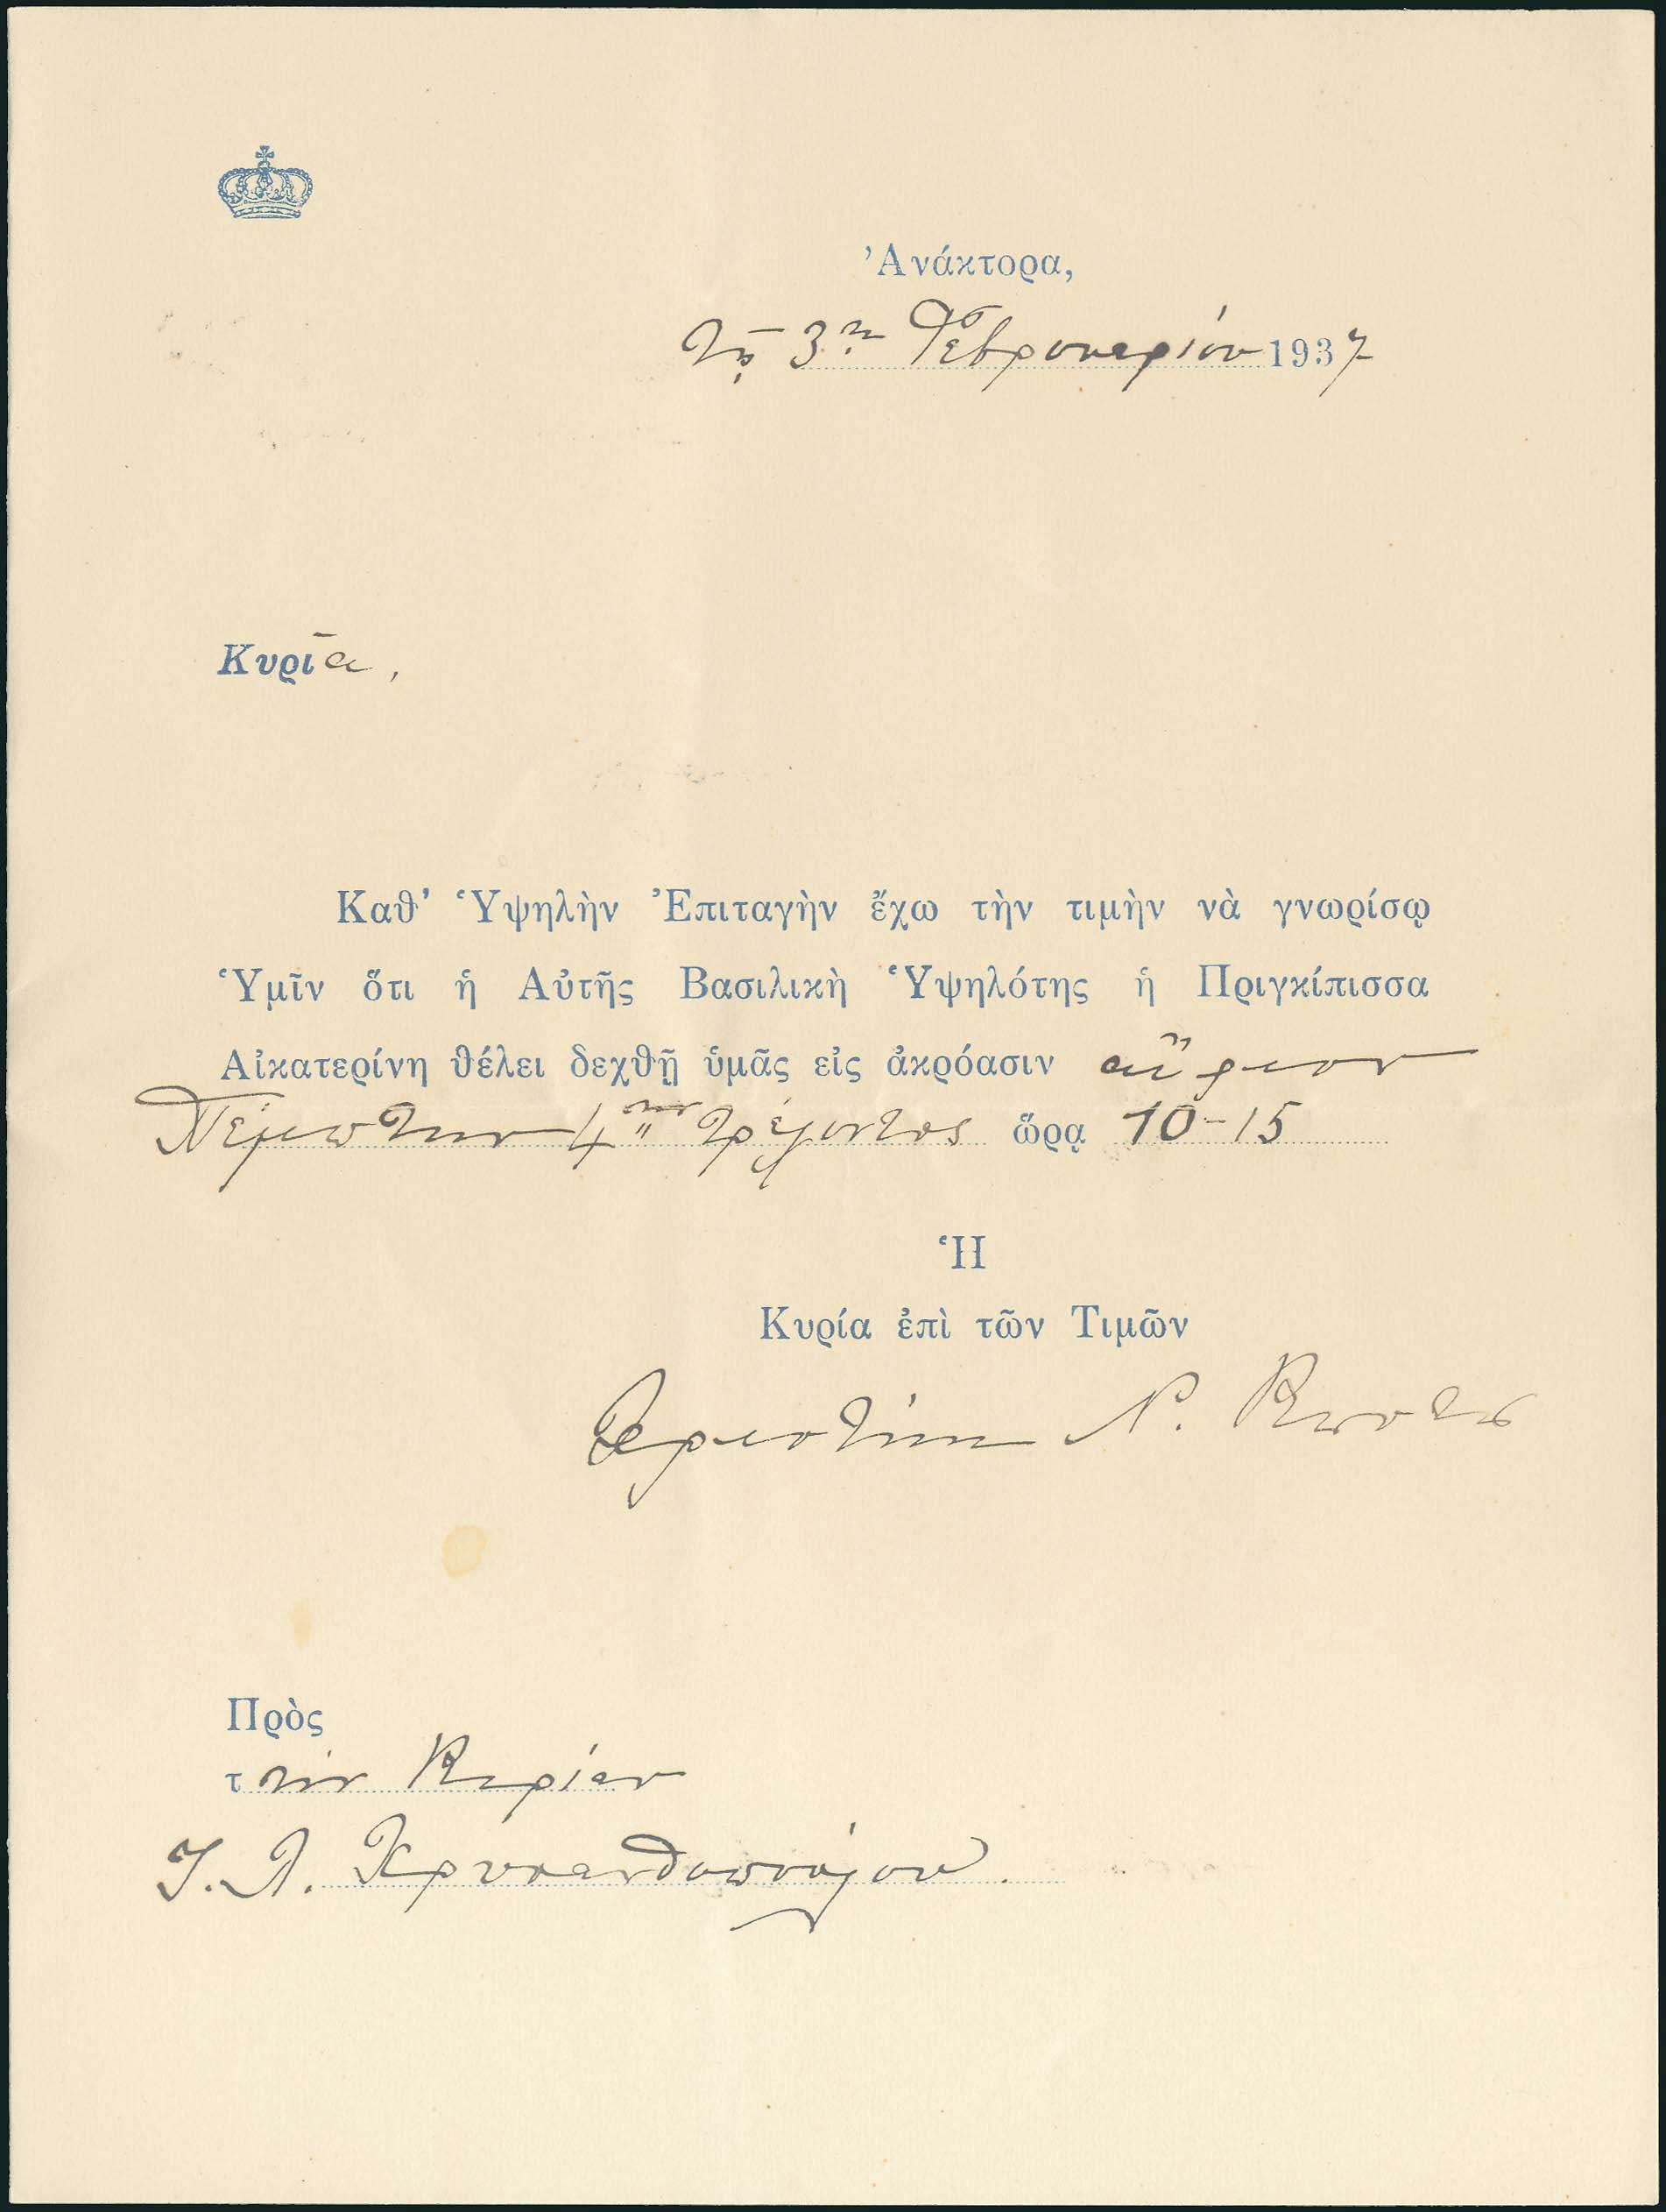 Ἀνάκτορα,
Τῇ 3ῃ Φεβρουαρίου 1937
Κυρία,
Καθ’ Ὑψηλὴν Ἐπιταγὴν ἔχω τὴν τιμὴν νὰ γνωρίσῳ
Ὑμῖν ὅτι ἡ Αὐτῆς Βασιλικὴ Ὑψηλότης ἡ Πριγκίπισσα
Αἰκατερίνη θέλει δεχθῇ ὑμᾶς εἰς ἀκρόασιν αὔριον
Πέμπτην 4ην τρέχοντος ὥρᾳ 10-15
Ἡ
Κυρία ἐπὶ τῶν Τιμῶν
Πρὸς
τ τὴν Κυρίαν
Ι. Λ. Χρυσανθοπούλου.